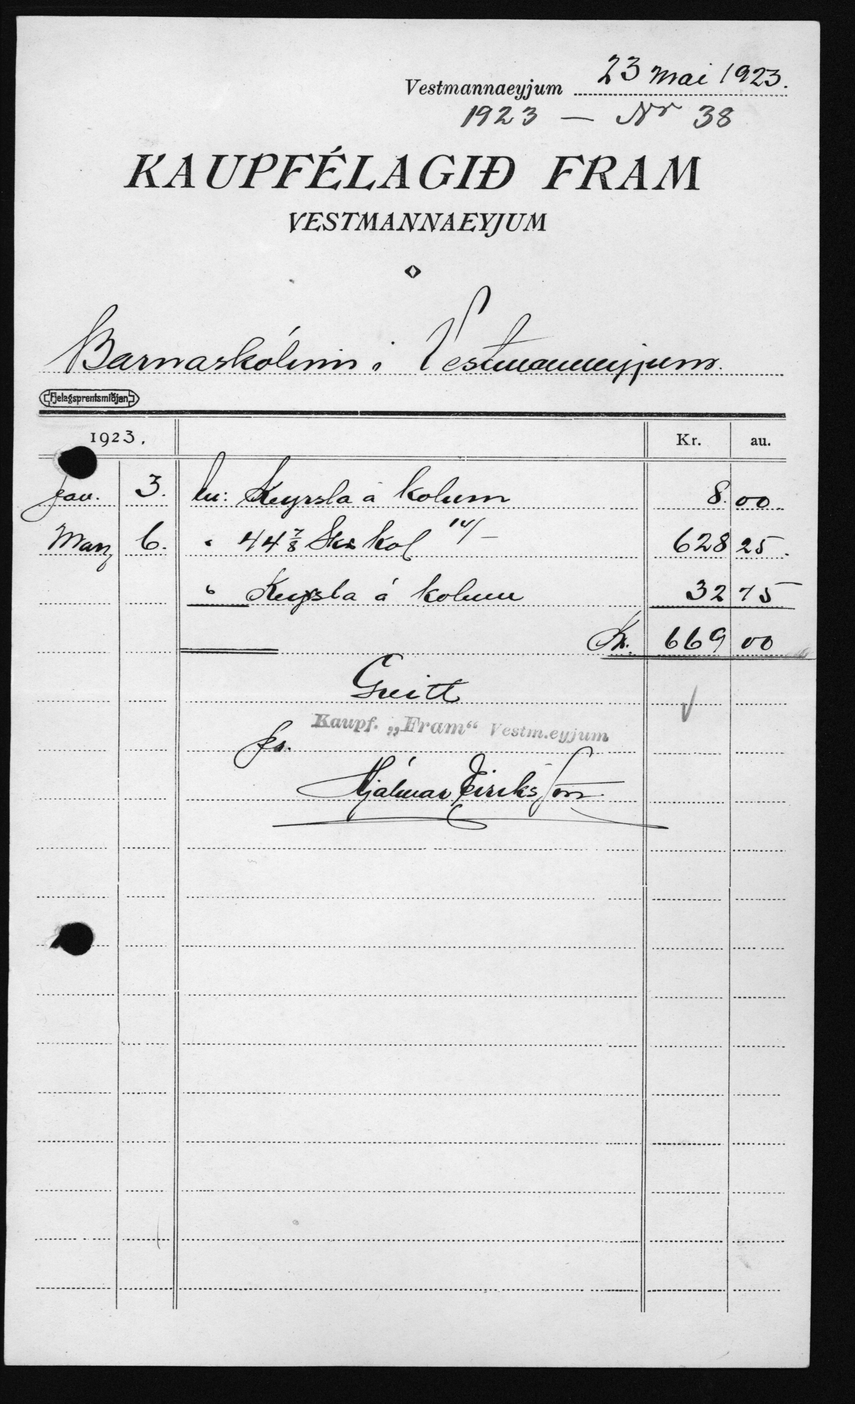 Vestmannaeyjum 23 mai 1923.
1923 — Nr 38
KAUPFÉLAGIÐ FRAM
VESTMANNAEYJUM
Barnaskólinn í Vestmannaeyjum.
Fjelagsprentsmiðjan
1923. Kr. au.
Jan. 3. Keyrsla á kolum 8.00
Marz 6. " 44 7/8 Sk kol 14/- 628 25.
" Keyrsla á kolum 32 75
Kr. 669 00
Kaupf. „Fram“ Vestm.eyjum
Hjálmar Eiríksson